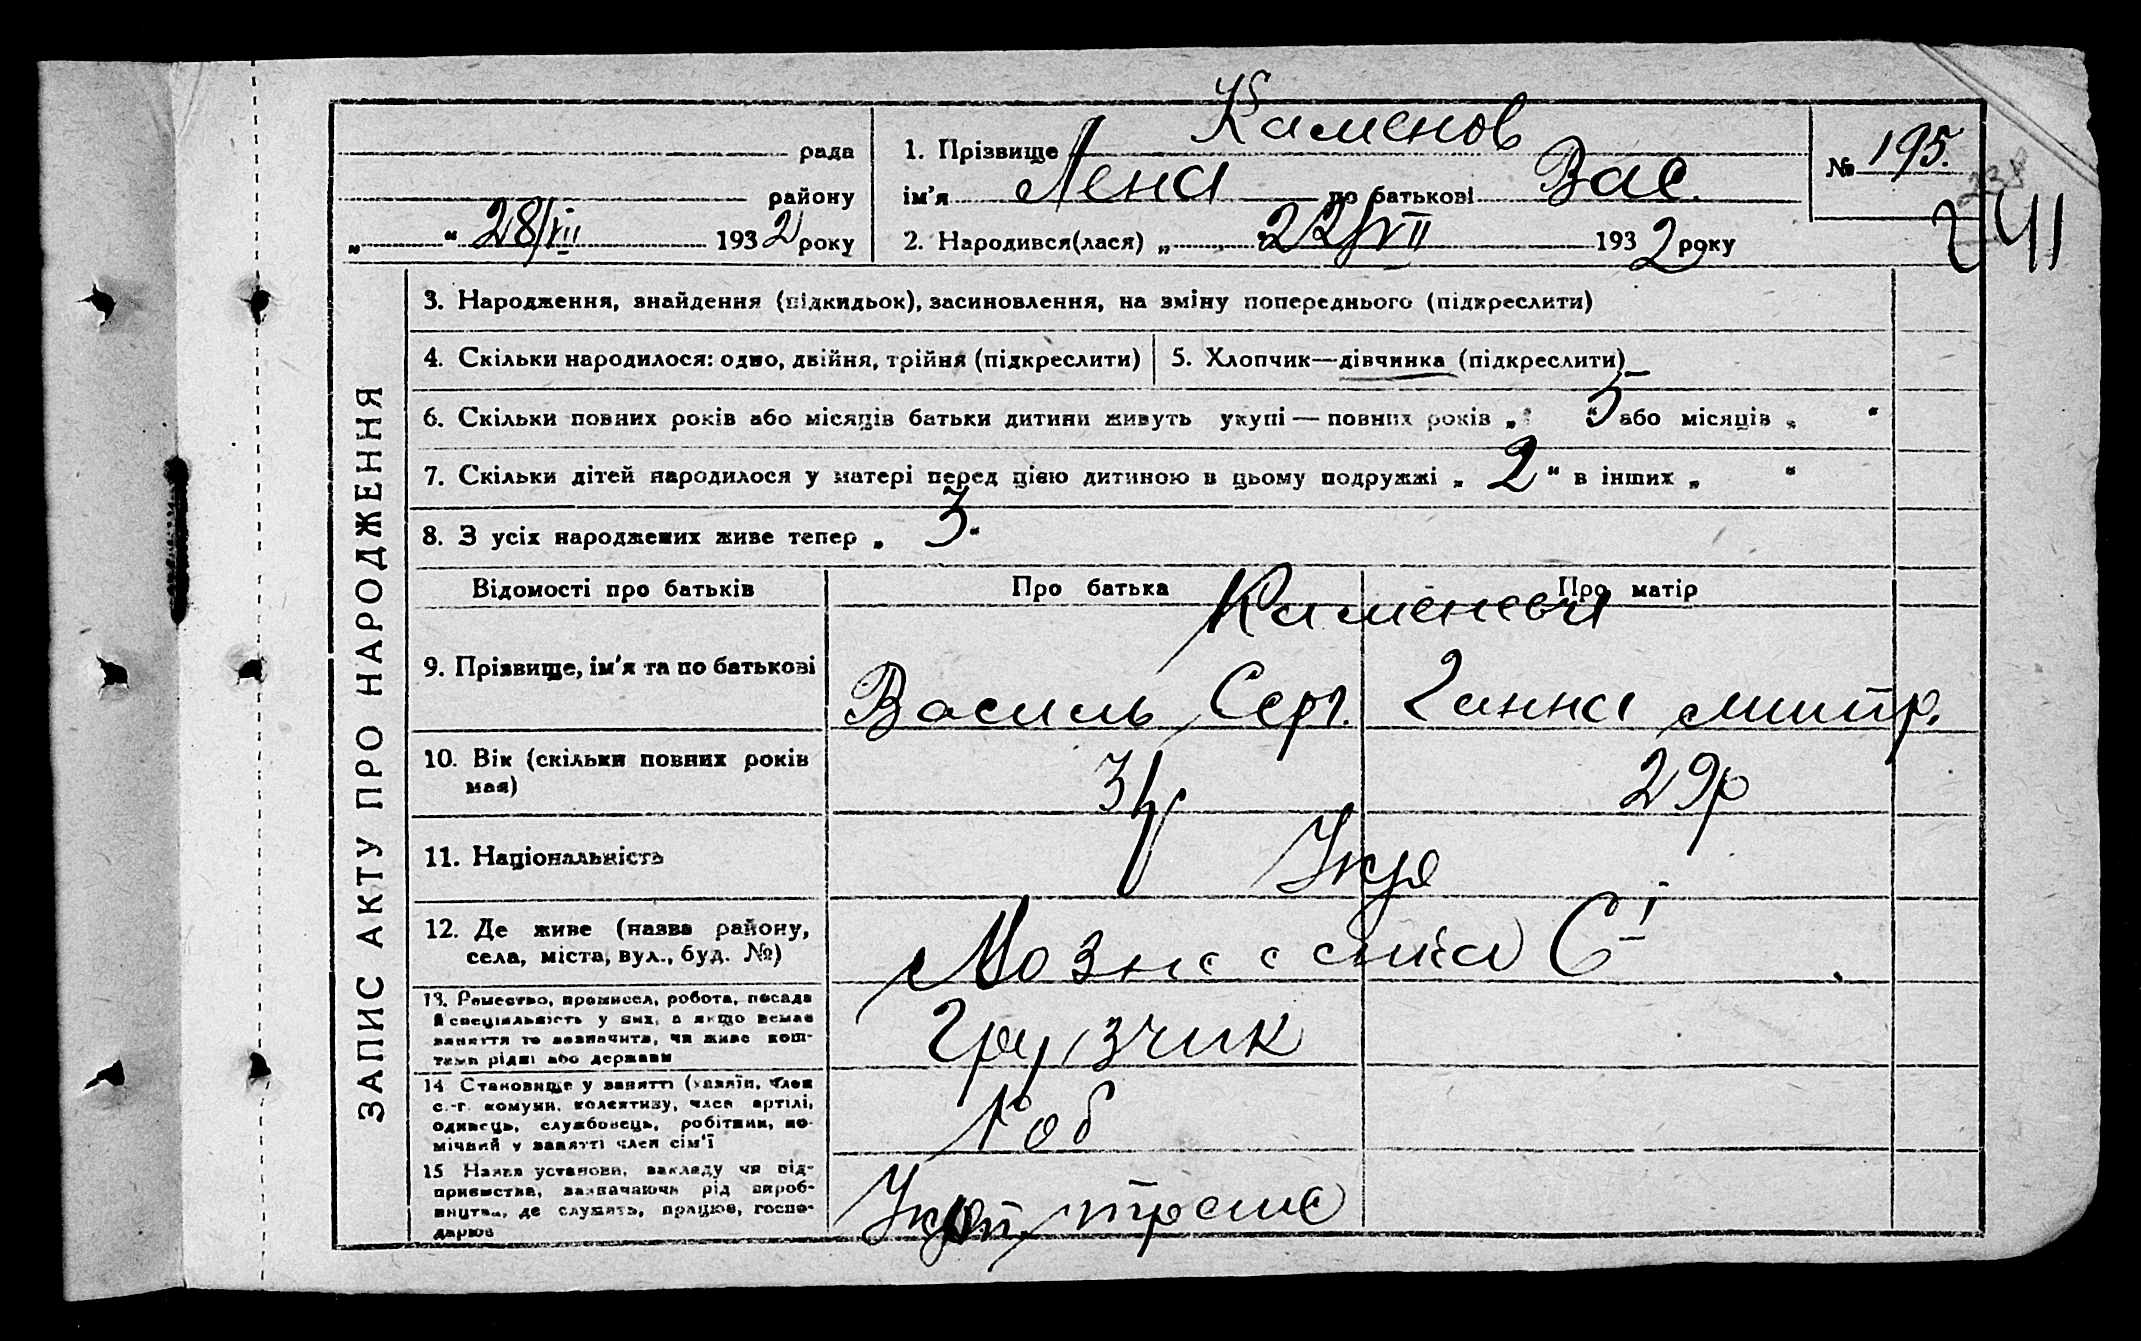 Каменов
рада
1. Прізвище
№ 195.
району
ім'я Лена по батькові Вас.
241
„ “ 28/VII 1932 року
2. Народився(лася) „ 22/VII 1932 року
ЗАПИС АКТУ ПРО НАРОДЖЕННЯ
3. Народження, знайдення (підкидьок), засиновлення, на зміну попереднього (підкреслити)
4. Скільки народилося: одно, двійня, трійня (підкреслити)
5. Хлопчик—дівчинка (підкреслити)
6. Скільки повних років або місяців батьки дитини живуть укупі — повних років „ 5 “ або місяців „ “
7. Скільки дітей народилося у матері перед цією дитиною в цьому подружжі „ 2 “ в інших „ “
8. З усіх народжених живе тепер „ 3.
Відомості про батьків
Про батька
Про матір
Каменови
9. Прізвище, ім'я та по батькові
Василь Серг.
Ганна Митр.
10. Вік (скільки повних років
має)
29р
11. Національність
Укр
12. Де живе (назва району,
села, міста, вул., буд. №)
13. Ремество, промисел, робота, посада
й спеціяльність у них, а якщо немає
заняття то зазначити, чи живе кош-
тами рідні або держави
Грузчик
14 Становище у занятті (хазяїн, член
с.-г. комуни, колективу, член артілі,
одинець, службовець, робітник, по-
мічний у занятті член сім'ї
Роб
15 Назва установи, закладу чи під-
приємства, зазначаючи рід вироб-
ництва, де служить, працює, госпо-
дарює